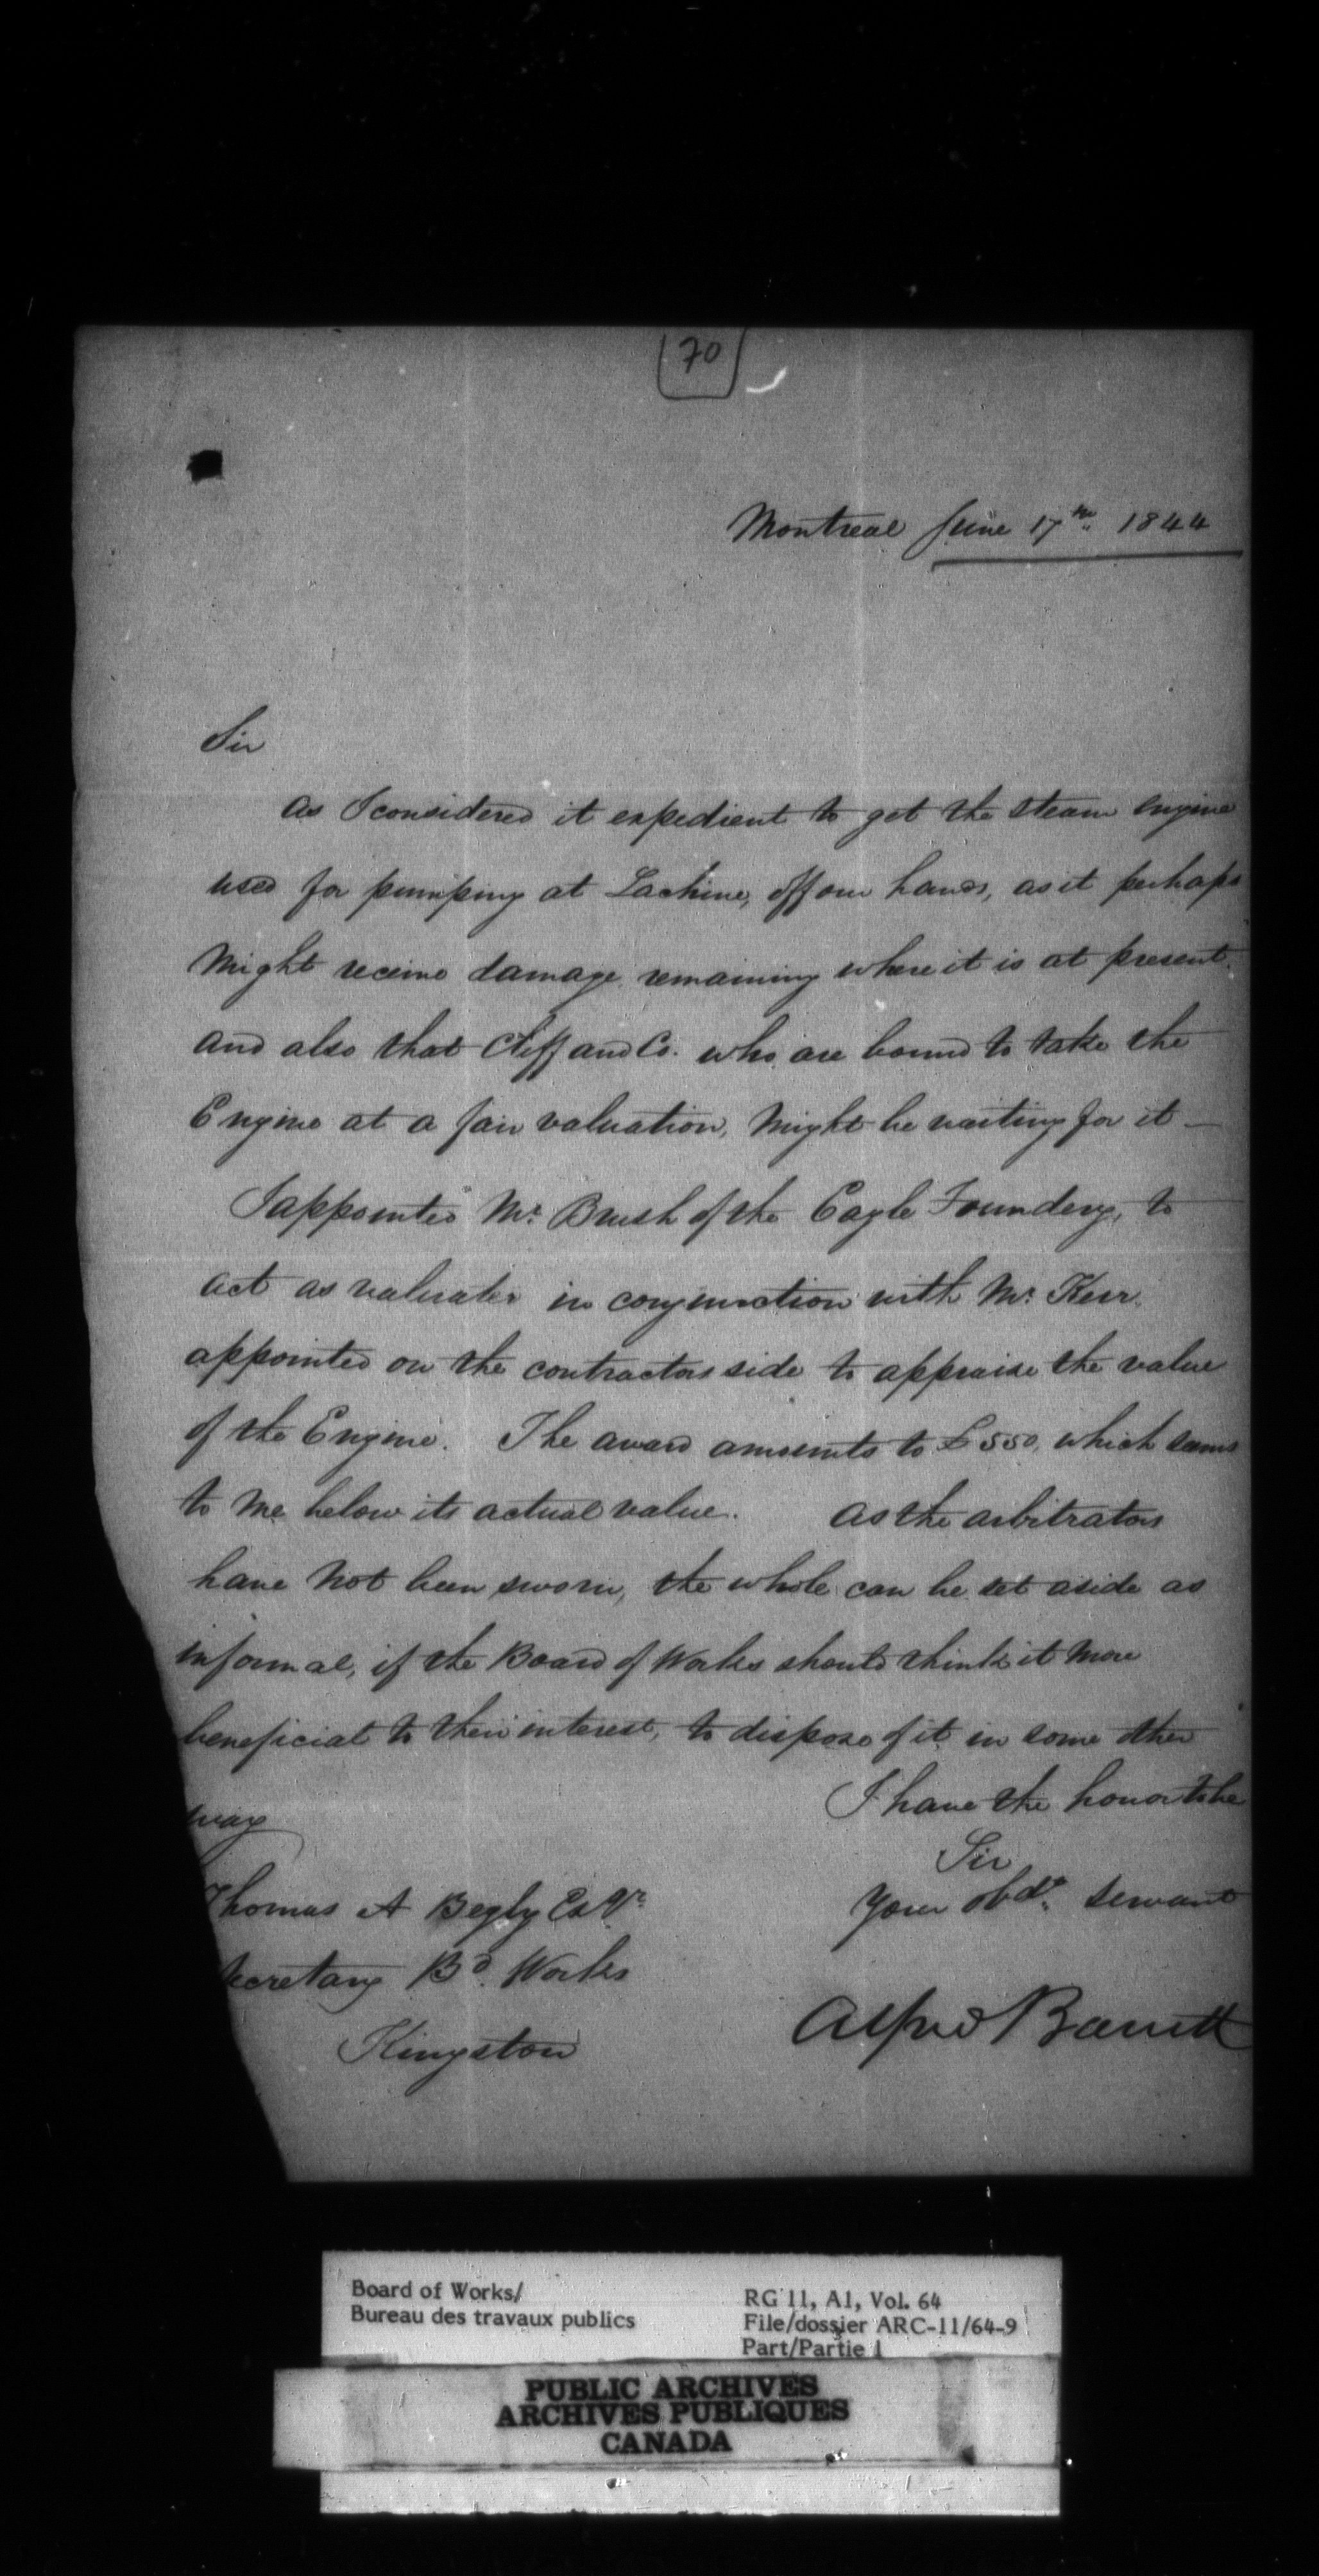 70
Montreal June 17th 1844
Sir
As I considered it expedient to get the steam engine
used for pumping at Lachine, off our hands, as it perhaps
Might receive damage remaining where it is at present.
and also that Cliff and Co. who are bound to take the
Engine at a fair valuation, Might be waiting for it —
I appointed Mr. Brush of the Eagle Foundery, to
act as valuator in conjunction with Mr. Kerr.
appointed on the contractors side to appraise the value
of the Engine. The award amounts to £550, which seems
to Me below its actual value. As the arbitrators
have Not been sworn, the whole can be set aside as
informal, if the Board of Works should think it More
beneficial to their interest, to dispose of it in some other
way
I have the honor to be
Sir
Your obdt. servant
Thomas A Begly Esqr.
Secretary Bd. Works
Kingston
Alfred Barrett
Board of Works/
Bureau des travaux publics
RG 11, A1, Vol. 64
File/dossier ARC-11/64-9
Part/Partie 1
PUBLIC ARCHIVES
ARCHIVES PUBLIQUES
CANADA